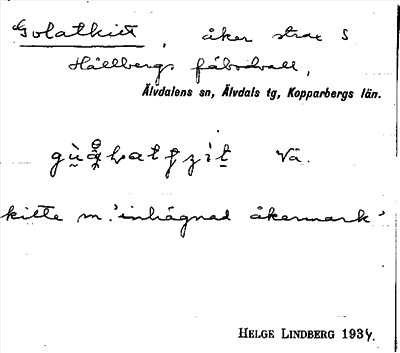 Golatkiet, åker strax S
Hållbergs fäbodvall,
Älvdalens sn, Älvdals tg, Kopparbergs län.
Vä.
kitte m. 'inhägnad åkermark'
HELGE LINDBERG 1934.